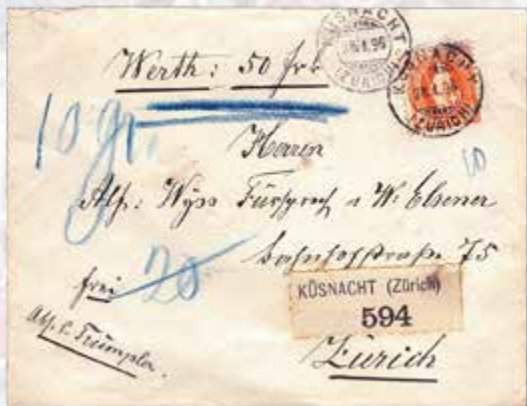 KÜSNACHT
(ZÜRICH)
KÜSNACHT
(ZÜRICH)
Werth: 50 frk
10 gr.
Herren
10
Alf. Wyss Fürsprech & W. Elsener
Bahnhofstraße 75
frei
20
KÜSNACHT (Zürich)
594
Zürich
Trümpler.